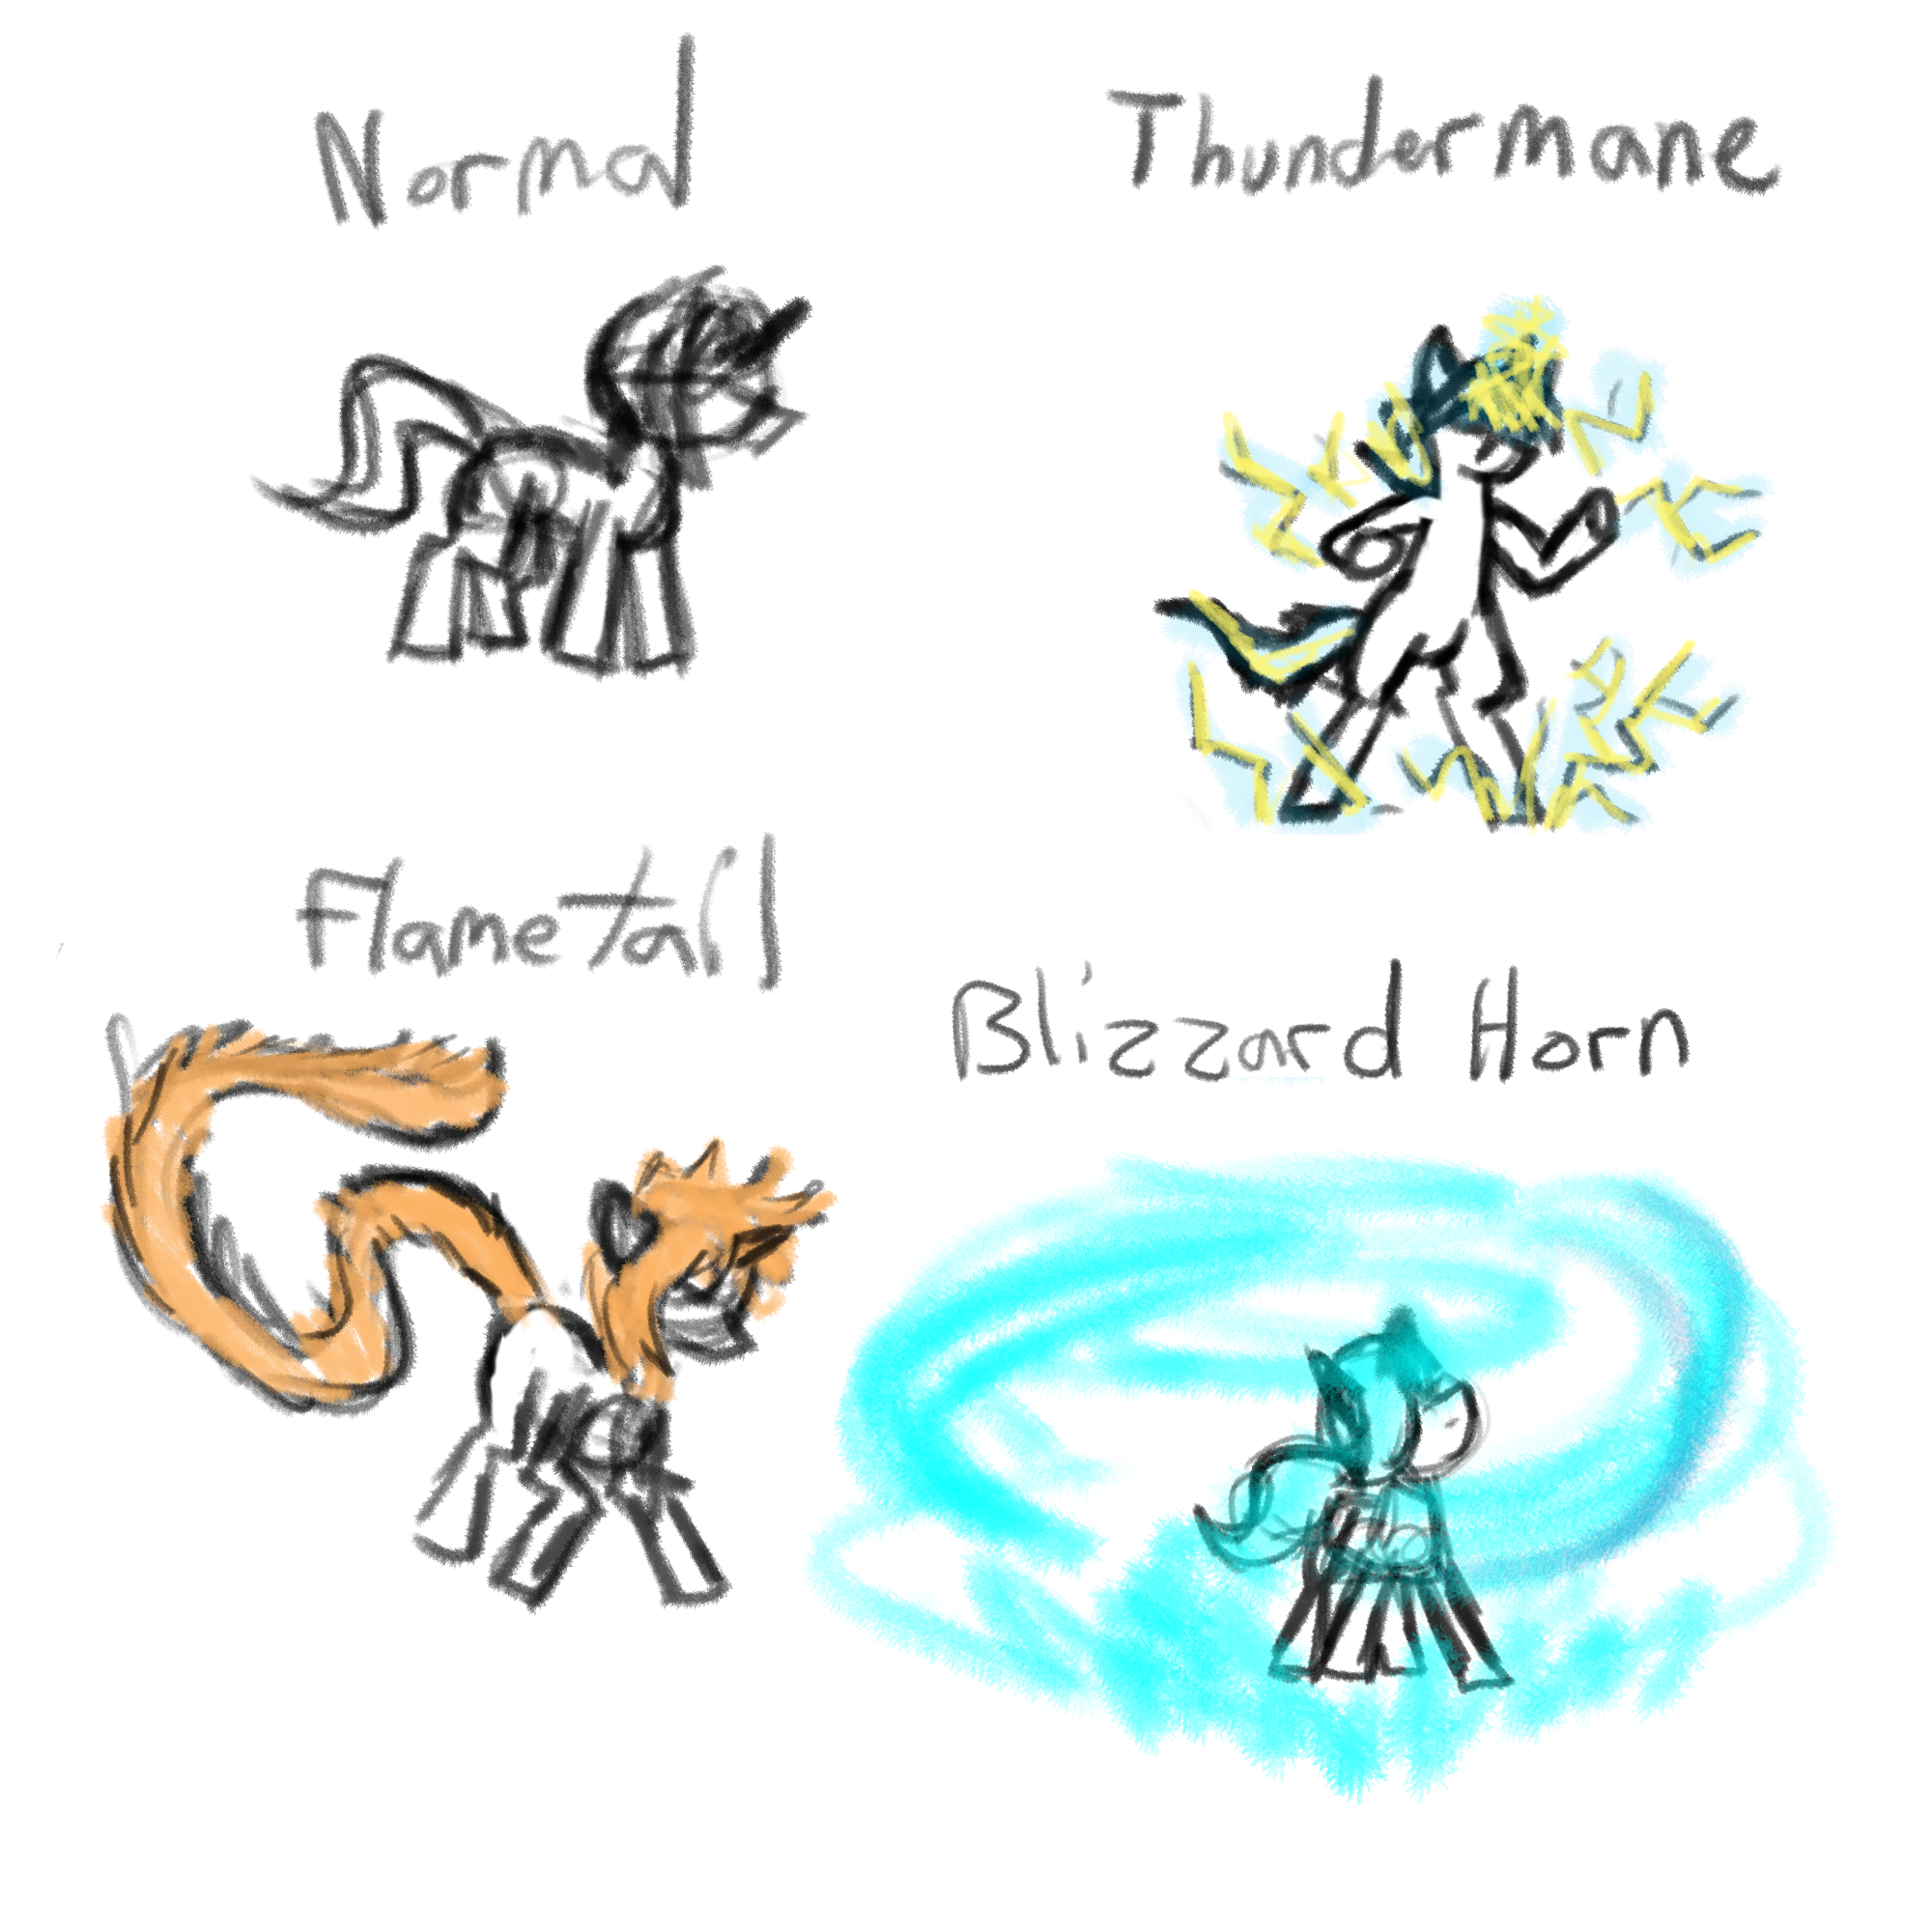 Normal
Thundermane
Flametail
Blizzard Horn